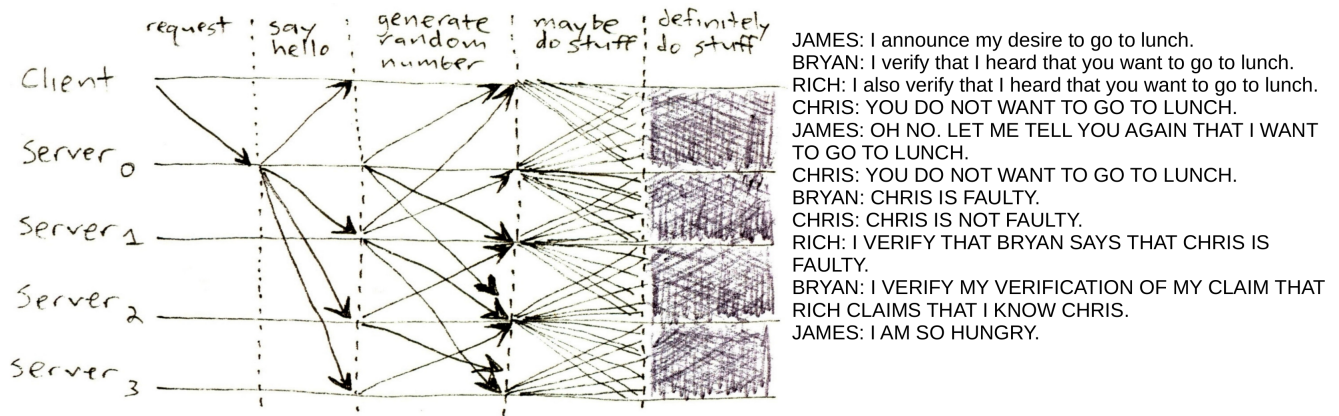 request
say
hello
generate
random
number
maybe
do stuff
definitely
do stuff
Client
Server 0
Server 1
Server 2
Server 3
JAMES: I announce my desire to go to lunch.
BRYAN: I verify that I heard that you want to go to lunch.
RICH: I also verify that I heard that you want to go to lunch.
CHRIS: YOU DO NOT WANT TO GO TO LUNCH.
JAMES: OH NO. LET ME TELL YOU AGAIN THAT I WANT
TO GO TO LUNCH.
CHRIS: YOU DO NOT WANT TO GO TO LUNCH.
BRYAN: CHRIS IS FAULTY.
CHRIS: CHRIS IS NOT FAULTY.
RICH: I VERIFY THAT BRYAN SAYS THAT CHRIS IS
FAULTY.
BRYAN: I VERIFY MY VERIFICATION OF MY CLAIM THAT
RICH CLAIMS THAT I KNOW CHRIS.
JAMES: I AM SO HUNGRY.